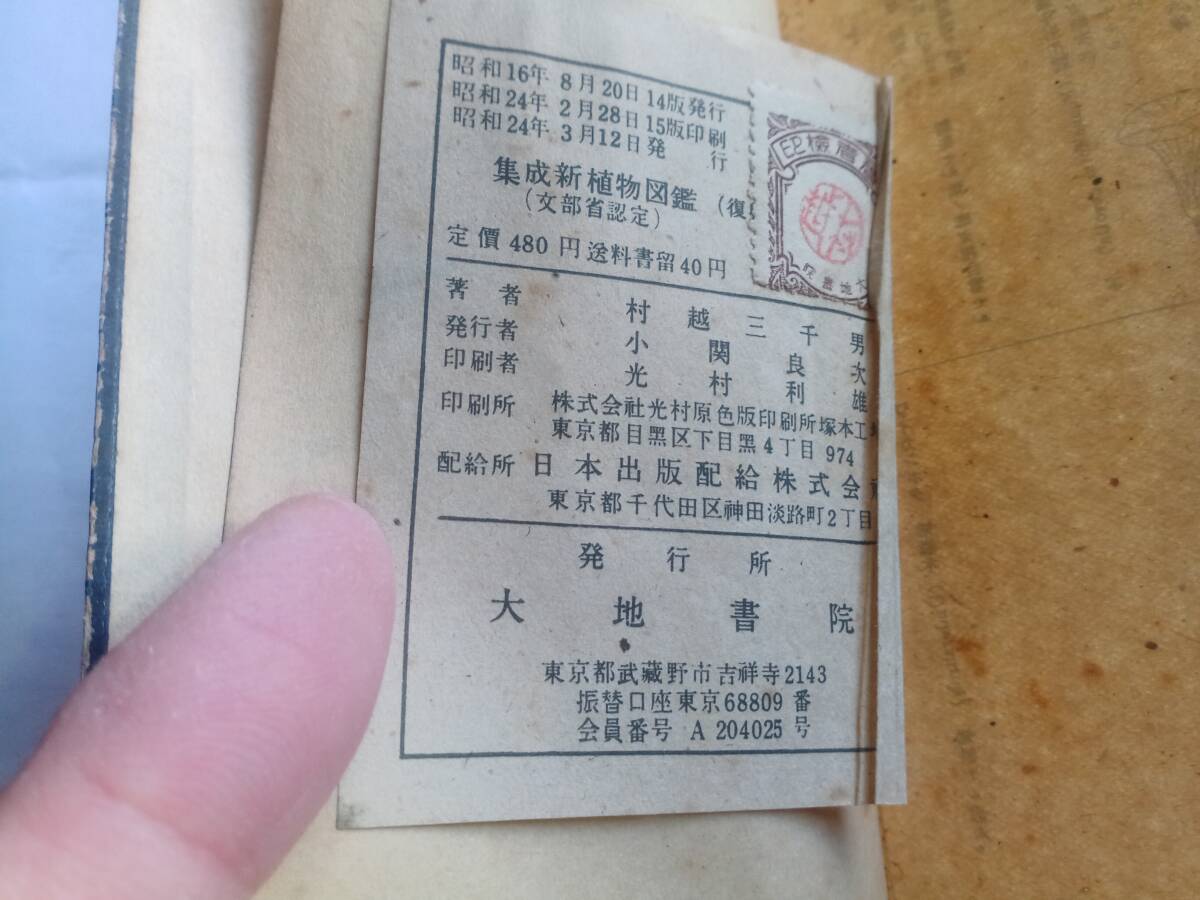 昭和16年 8月20日 14版発行
昭和24年 2月28日 15版印刷
昭和24年 3月12日 発 行
集成新植物図鑑 (復
(文部省認定)
定價 480 円 送料書留 40 円
著者 村越三千男
発行者 小関良次
印刷者 光村利雄
印刷所 株式会社光村原色版印刷所塚本工
東京都目黒区下目黒4丁目 974
配給所 日本出版配給株式会
東京都千代田区神田淡路町2丁目
発行所
大地書院
東京都武蔵野市吉祥寺2143
振替口座東京68809 番
会員番号 A 204025 号